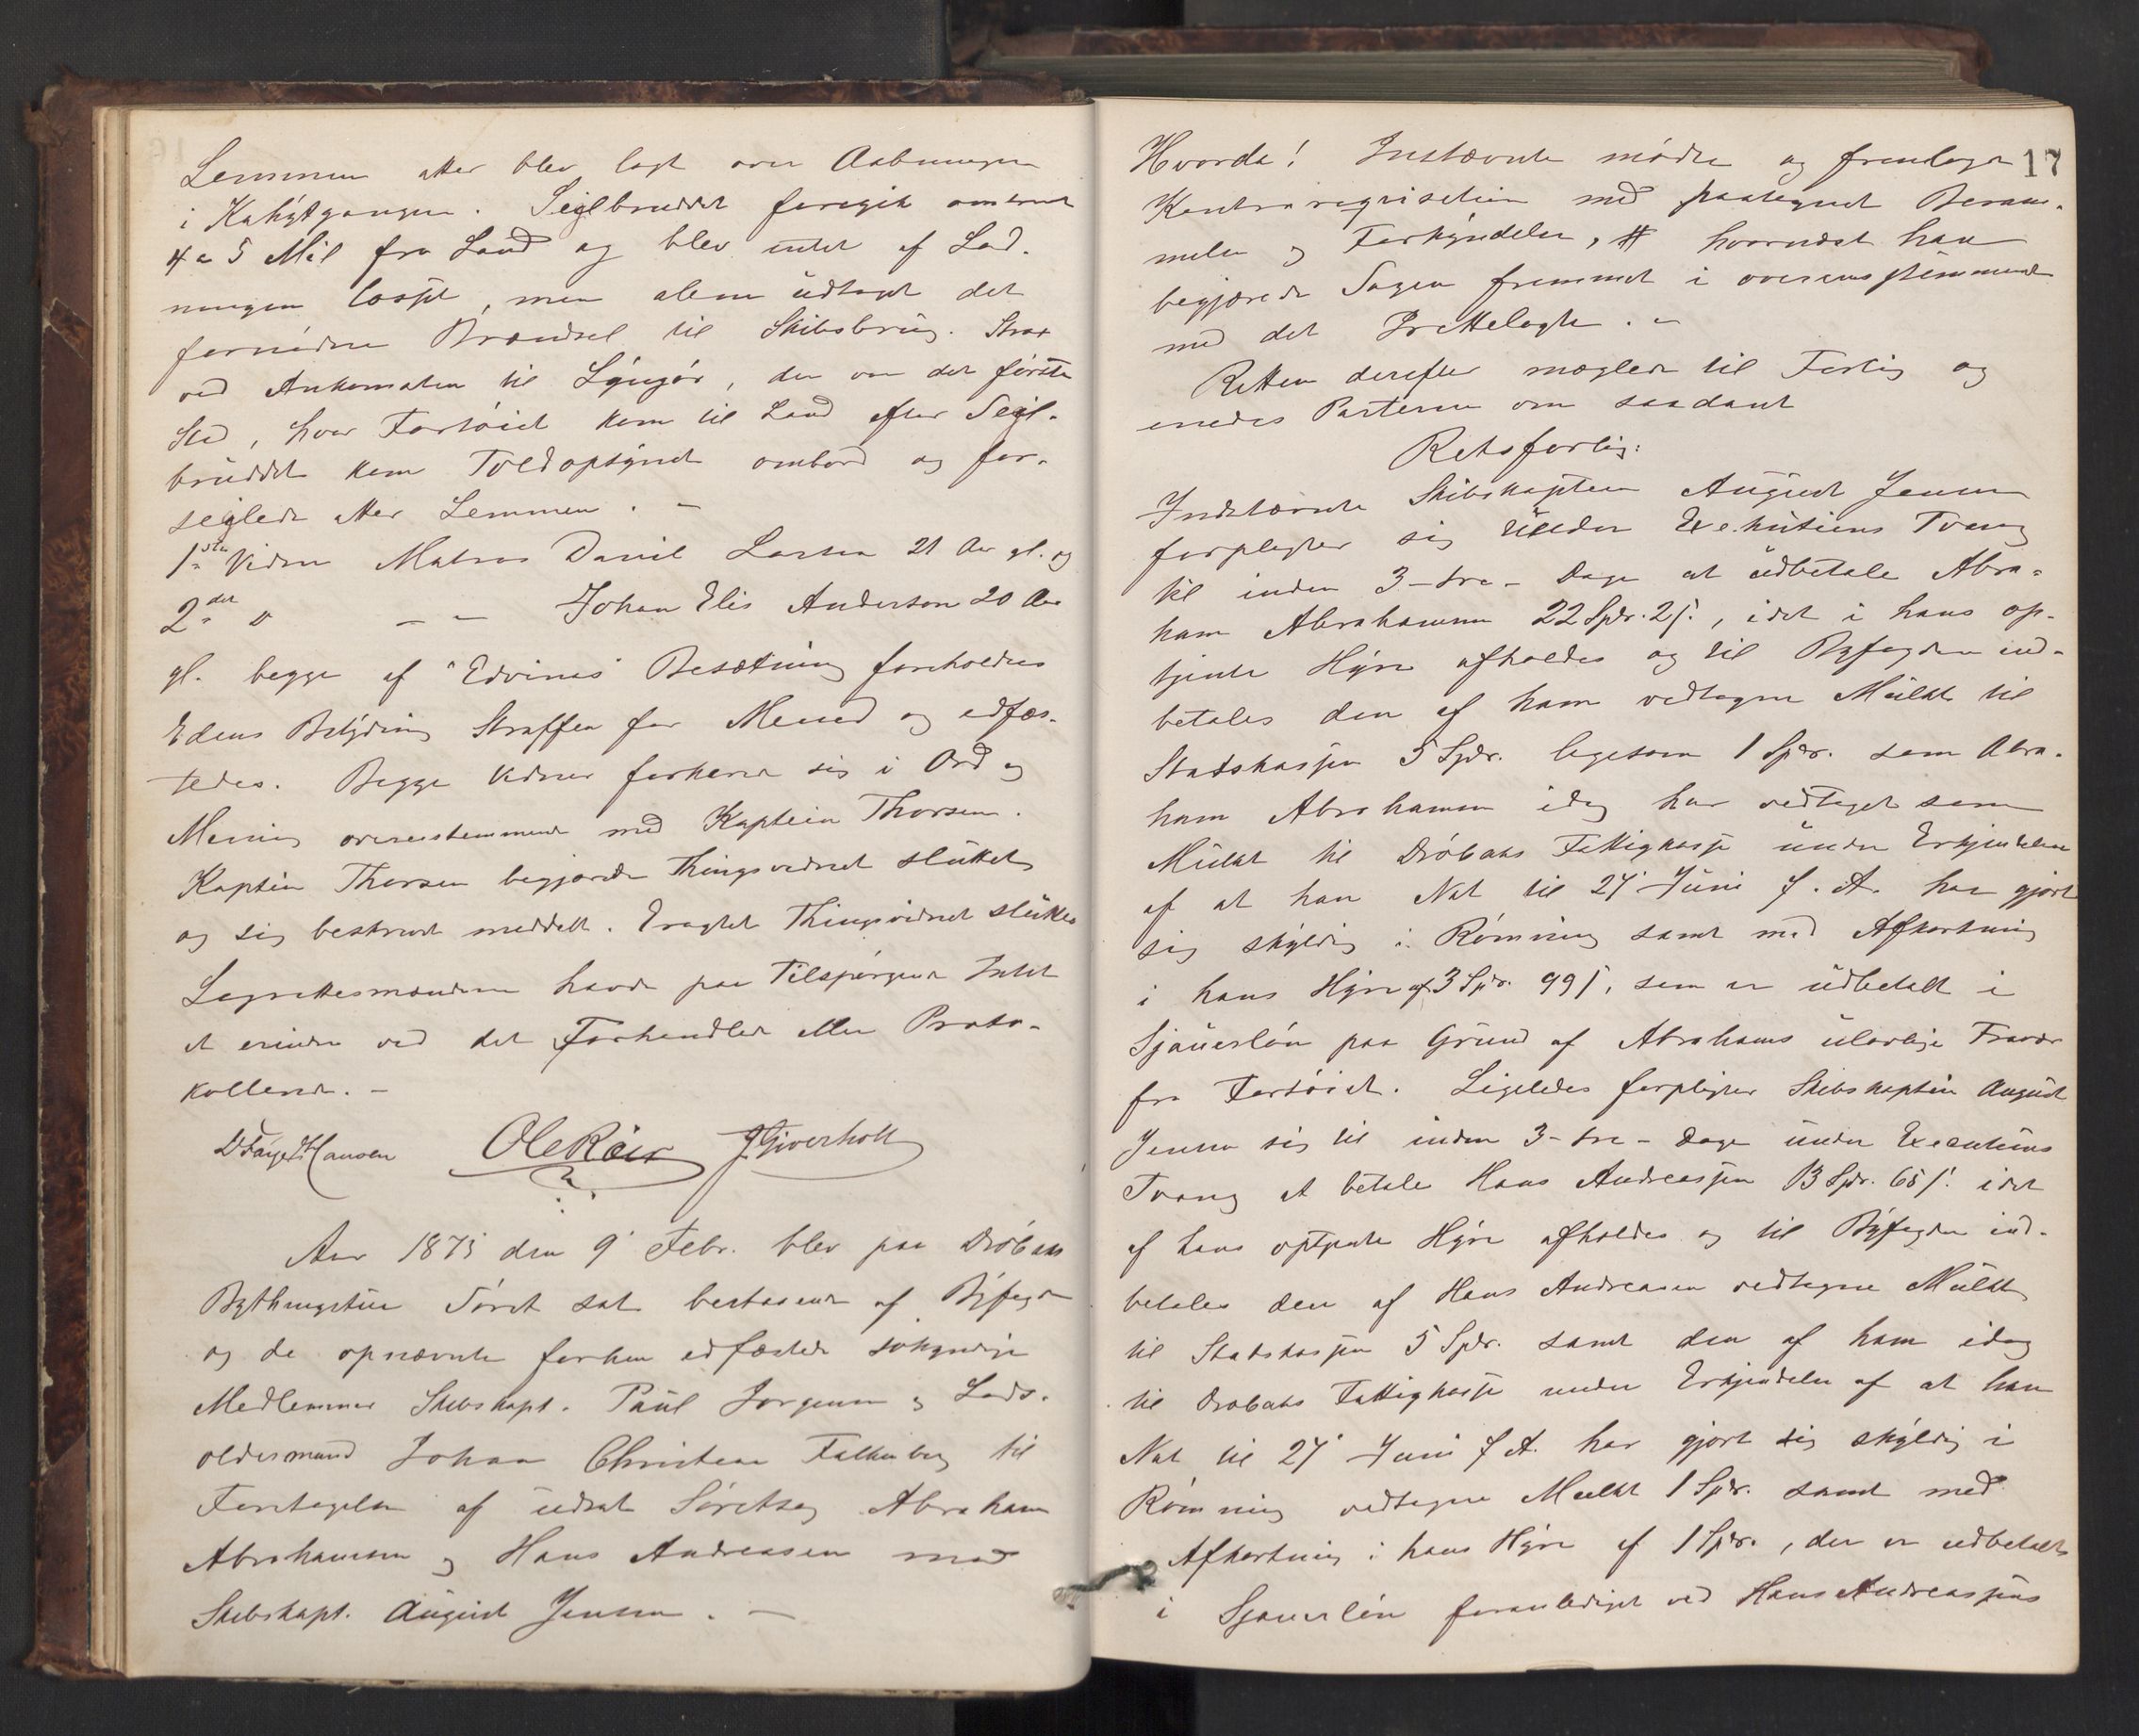 Lemmen atter blev lagt over Aabningen
i Kahytgangen. Seglbruddet foregik omtrent
4 a 5 Mil fra Land og blev intet af Lad-
ningen losset, men alene udtaget det
fornødne Brændsel til Skibsbrug. Strax
ved Ankomsten til Lyngør, der var det første
Sted, hvor Fartøiet kom til Land efter Segl-
bruddet kom Toldopsynet ombord og for-
seglede atter Lemmen. -
1ste Vidne Matros Daniel Larsen 21 Aar gl. og
2det " - - Johan Elis Anderson 20 Aar
gl. begge af "Edvines" Besætning foreholdtes
Edens Betydning Straffen for Mened og edfæs-
tedes. Begge Vidner forklared sig i Ord og
Mening overensstemmende med Kaptein Thorsen.
Kaptein Thorsen begjærede Thingsvidnet sluttet
og sig beskrevet meddelt. Eragtet Thingsvidnet sluttes
Lagrettesmændene havde paa Tilspørgende Intet
at erindre ved det Forhandlede eller Proto-
kollerede. -
D Faye Hansen Ole Röer J Gjverholt
Aar 1875 den 9' Febr. blev paa Drøbaks
Bythingstue Søret sat bestaaende af Byfogden
og de opnævnte forhen edfæstede søkyndige
Medlemmer Skibskapt. Paul Jørgensen og Lods-
oldermand Johan Christian Falkenberg til
Foretagelse af udsat Søretssag Abraham
Abrahamsen og Hans Andreasen mod
Skibskapt. August Jensen. -
17
Hvorda! Instævnte mødte og fremlagde
Kontrarequisition med paategnet Beram-
melse og Forkyndelse, hvornæst han
begjærede Sagen fremmet i overensstemmende
med det Irettelagte. -
Retten derefter mæglede til Forlig og
enedes Parterne om saadant
Retsforlig:
Indstævnte Skibskaptein August Jensen
forpligter sig under Exekutions Tvang
til inden 3 - tre - Dage at udbetale Abra-
ham Abrahamsen 22 Spdr. 2 s., idet i hans op-
tjente Hyre afholdes og til Byfogden ind-
betales den af ham vedtagne Mulkt til
Statskassen 5 Spdr. ligesom 1 Spdr. som Abra-
ham Abrahamsen idag har vedtaget som
Mulkt til Drøbaks Fattigkasse under Erkjendelse
af at han Nat til 27' Juni f. A. har gjort
sig skyldig i Rømning samt med Afkortning
i hans Hyre af 3 Spdr. 99 s, som er udbetalt i
Sjauerløn paa Grund af Abrahams ulovlige Fravær
fra Fartøiet. Ligeledes forpligter Skibskaptein August
Jensen sig til inden 3 - tre - Dage under Executions
Tvang at betale Hans Andreassen 13 Spdr. 65 s. idet
af hans optjente Hyre afholdes og til Byfogden ind-
betales den af Hans Andreasen vedtagne Mulkt
til Statskassen 5 Spdr. samt den af ham idag
til Drøbaks Fattigkasse under Erkjendelse af at han
Nat til 27' Juni f. A. har gjort sig skyldig i
Rømning vedtagne Mulkt 1 Spdr. samt med
Afkortning i hans Hyre af 1 Spdr., der er udbetalt
i Sjauerløn foranlediget ved Hans Andreassens